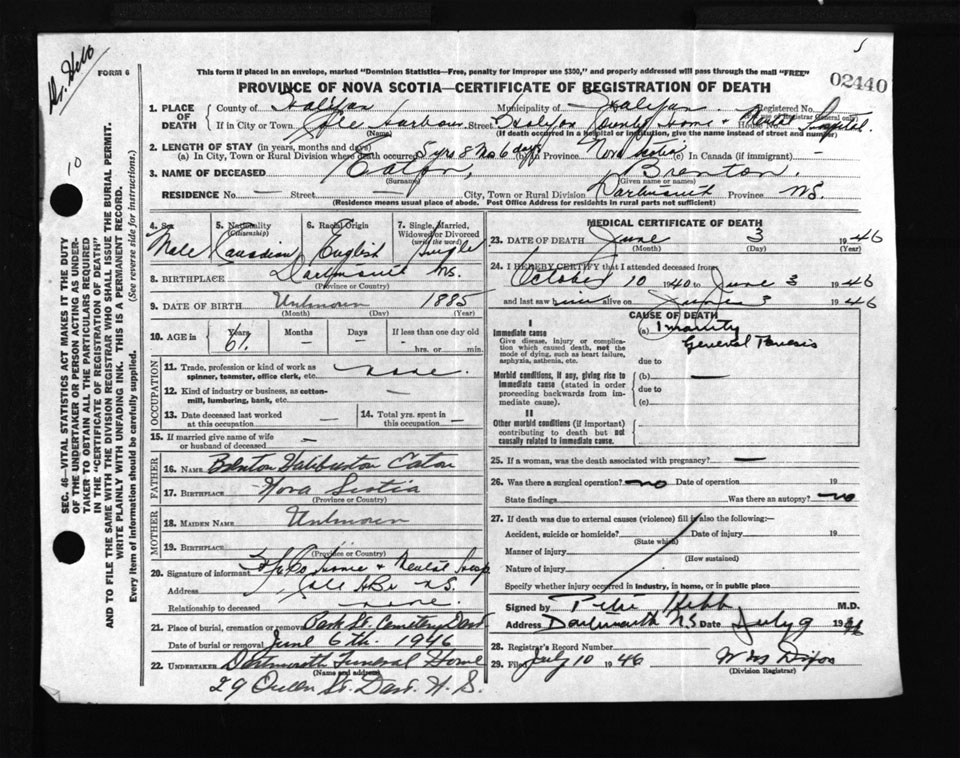 Dr. Hebb
FORM 6
This form if placed in an envelope, marked "Dominion Statistics—Free, penalty for improper use $300," and properly addressed will pass through the mail "FREE"
02440
PROVINCE OF NOVA SCOTIA—CERTIFICATE OF REGISTRATION OF DEATH
1. PLACE OF DEATH
County of Halifax Municipality of Halifax Registered No.
(For use of Registrar General only)
If in City or Town Cole Harbour Street Halifax County Home & Mental House No. Hospital.
(Name) (If death occurred in a hospital or institution, give the name instead of street and number)
2. LENGTH OF STAY (in years, months and days)
(a) In City, Town or Rural Division where death occurred 5 yrs 8 Mo 6 days (b) in Province Nova Scotia (c) In Canada (if immigrant) —
3. NAME OF DECEASED Eaton, Brenton.
(Surname) (Given name or names)
RESIDENCE No. — Street — City, Town or Rural Division Dartmouth Province N.S.
(Residence means usual place of abode. Post Office Address for residents in rural parts not sufficient)
4. Sex 5. Nationality (Citizenship) 6. Racial Origin 7. Single, Married, Widowed or Divorced (write the word)
Male Canadian English Single
8. BIRTHPLACE Dartmouth N.S.
(Province or Country)
9. DATE OF BIRTH Unknown 1885
(Month) (Day) (Year)
10. AGE in Years Months Days If less than one day old
61. — — hrs. or min.
OCCUPATION
11. Trade, profession or kind of work as spinner, teamster, office clerk, etc. none.
12. Kind of industry or business, as cotton-mill, lumbering, bank, etc. —
13. Date deceased last worked at this occupation — 14. Total yrs. spent in this occupation —
15. If married give name of wife or husband of deceased —
FATHER
16. NAME Brenton Haliburton Eaton
17. BIRTHPLACE Nova Scotia
(Province or Country)
MOTHER
18. MAIDEN NAME Unknown
19. BIRTHPLACE
(Province or Country)
20. Signature of informant Hfx Co Home & Mental Hosp
Address Cole Hbr N.S.
Relationship to deceased none.
21. Place of burial, cremation or removal Park St. Cemetery Dart
Date of burial or removal June 6th 1946
22. UNDERTAKER Dartmouth Funeral Home
(Name and address)
29 Queen St. Dart. N.S.
MEDICAL CERTIFICATE OF DEATH
23. DATE OF DEATH June 3 1946
(Month) (Day) (Year)
24. I HEREBY CERTIFY that I attended deceased from
October 10 1940 to June 3 1946
and last saw him alive on June 3 1946
CAUSE OF DEATH
I
Immediate cause
Give disease, injury or complication which caused death, not the mode of dying, such as heart failure, asphyxia, asthenia, etc.
(a) Insanity
General Paresis
due to
Morbid conditions, if any, giving rise to immediate cause (stated in order proceeding backwards from immediate cause).
(b) —
due to
(c)
II
Other morbid conditions (if important) contributing to death but not causally related to immediate cause.
25. If a woman, was the death associated with pregnancy? —
26. Was there a surgical operation? no Date of operation 19
State findings Was there an autopsy? no
27. If death was due to external causes (violence) fill in also the following:—
Accident, suicide or homicide? Date of injury 19
(State which)
Manner of injury
(How sustained)
Nature of injury
Specify whether injury occurred in industry, in home, or in public place
Signed by Peter Hebb M.D.
Address Dartmouth NS Date July 9 1946
28. Registrar's Record Number
29. Filed July 10 1946 W M Dixon
(Division Registrar)
10
SEC. 46—VITAL STATISTICS ACT MAKES IT THE DUTY OF THE UNDERTAKER OR PERSON ACTING AS UNDERTAKER TO OBTAIN ALL THE PARTICULARS REQUIRED IN THE "CERTIFICATE OF REGISTRATION OF DEATH" AND TO FILE THE SAME WITH THE DIVISION REGISTRAR WHO SHALL ISSUE THE BURIAL PERMIT.
WRITE PLAINLY WITH UNFADING INK. THIS IS A PERMANENT RECORD.
Every item of information should be carefully supplied. (See reverse side for instructions.)